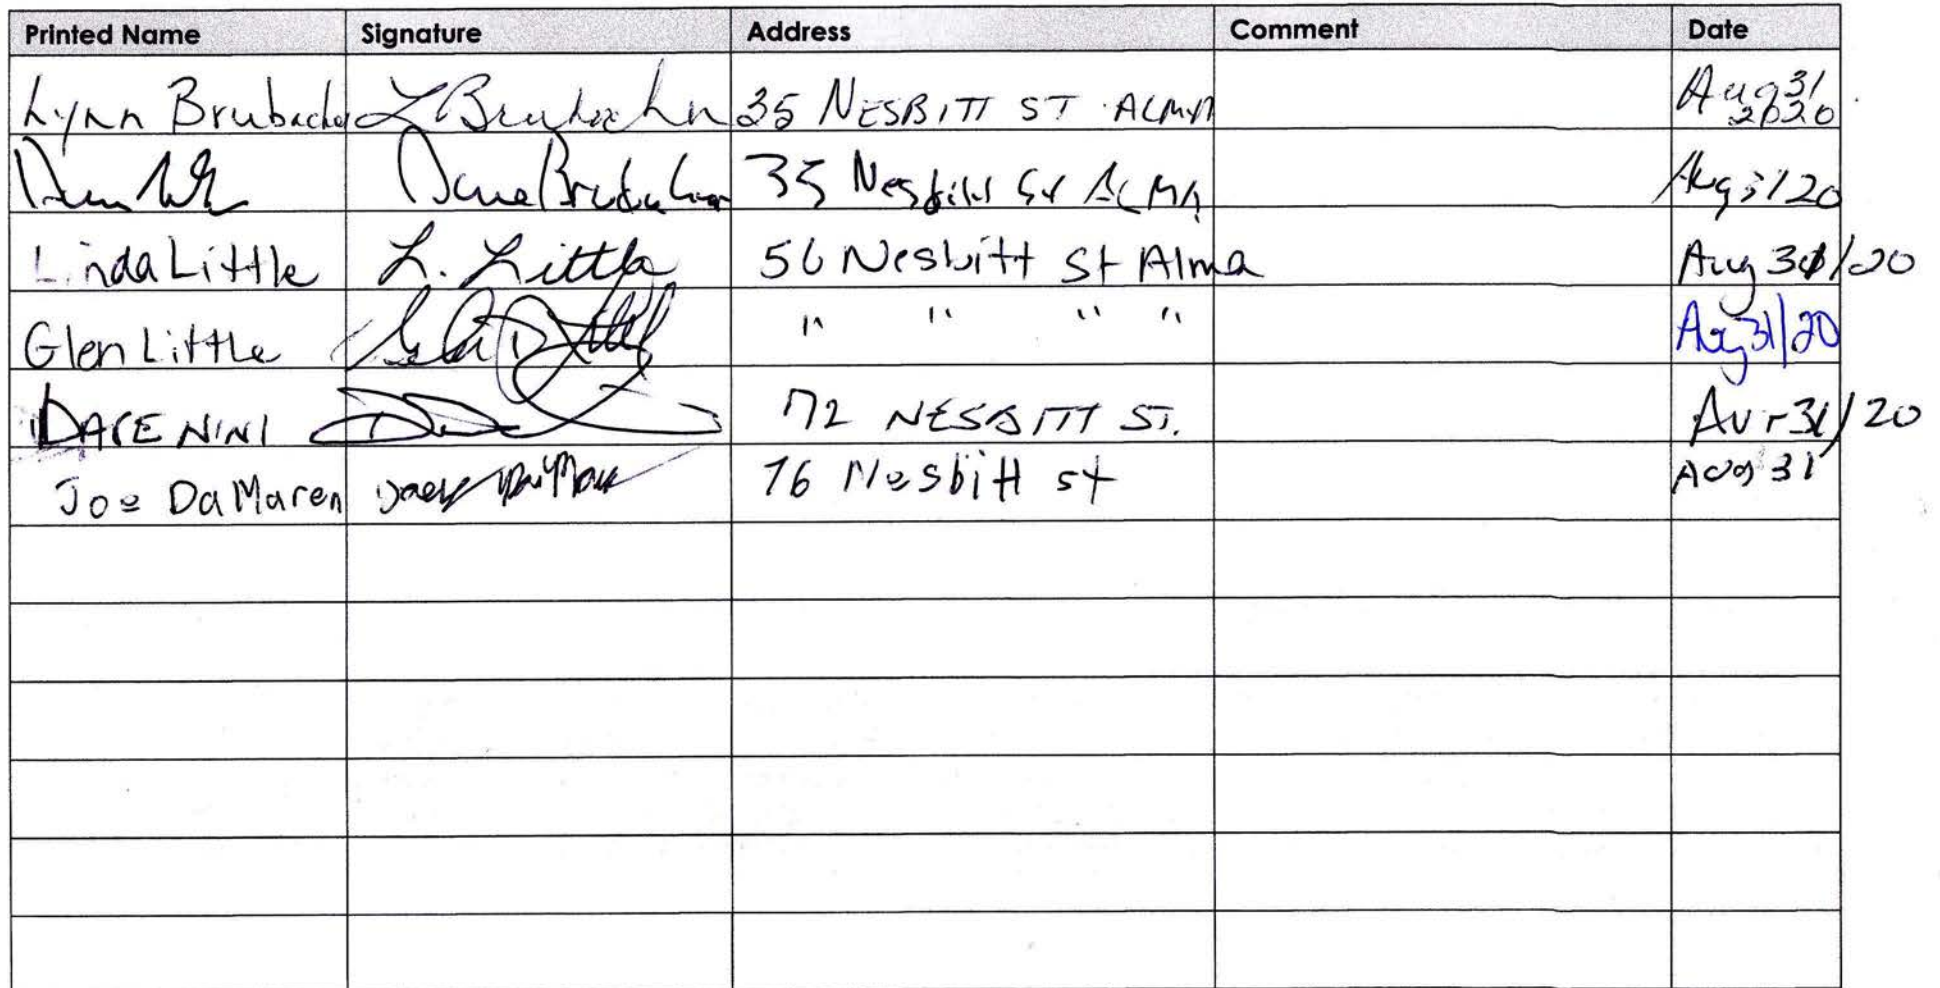 Printed Name Signature Address Comment Date
Lynn Brubacher L Brubacher 35 NESBITT ST ALMA Aug 31 2020
Dave Brubacher 35 Nesbitt St ALMA Aug 31 20
Linda Little L. Little 56 Nesbitt St Alma Aug 31/20
Glen Little " " " " Aug 31/20
NINI 72 NESBITT ST. 31/20
Joe DaMaren 76 Nesbitt st Aug 31